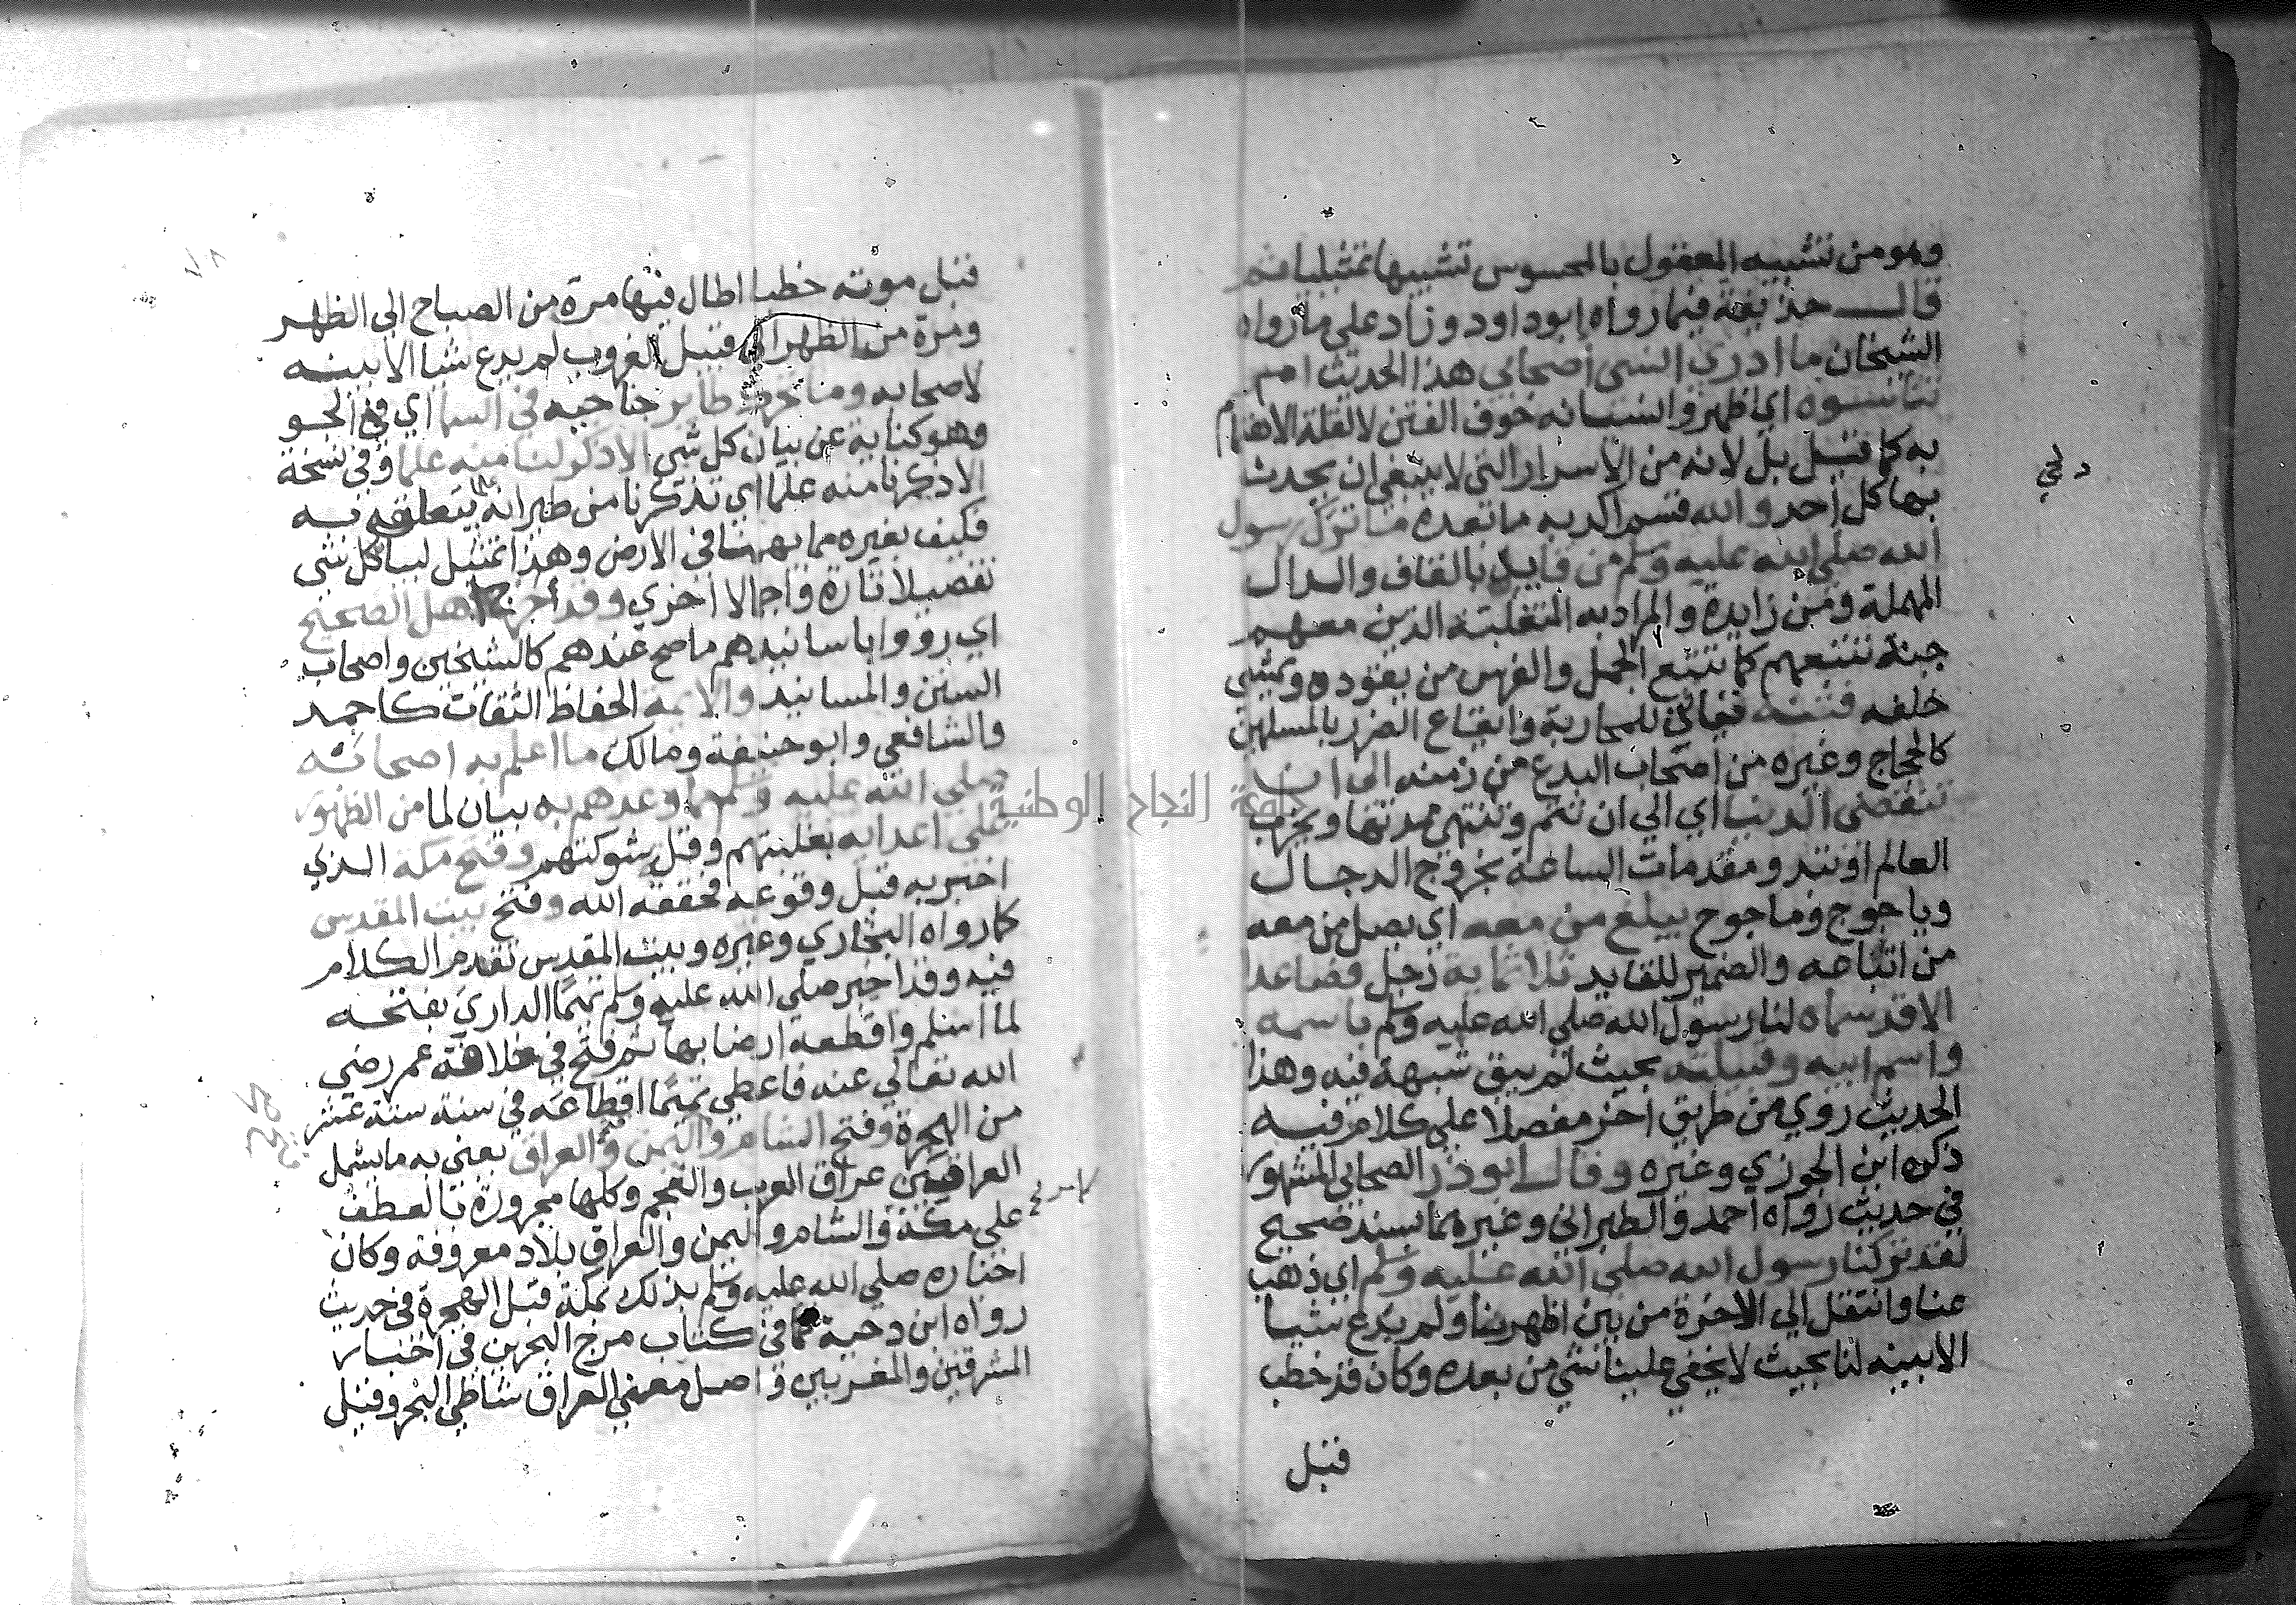 وهو من تشبيه المعقول بالمحسوس تشبيها تمثيليا ثم
قال حذيفة فيما رواه ابو داود وزاد على ما رواه
الشيخان ما ادري انسى اصحابي هذا الحديث ام
تناسوه اي اظهروا نسيانه خوف الفتن لا لقلة الاهتمام
به كما قيل بل لانه من الاسرار التي لا ينبغي ان يحدث
بها كل احد والله قسم اكد به ما بعده ما ترك رسول
الله صلى الله عليه وسلم من قايد بالقاف والدال
المهملة ومن زايدة والمراد به المتغلبة الذين معهم
جبة تتبعهم كما يتبع الجمل والفرس من يقوده ويمشي
خلفه فتنة للمحاربة وايقاع الضرر بالمسلمين
كالحجاج وغيره من اصحاب البدع من زمنه الى ان
تنقضي الدنيا اي الي ان تتم وتنتهي مدتها ويخرب
العالم او تبدو مقدمات الساعة بخروج الدجال
وياجوج وماجوج يبلغ من معه اي يصل من معه
من اتباعه والضمير للقايد ثلاثماية رجل فصاعدا
الا قد سماه لنا رسول الله صلى الله عليه وسلم باسمه
واسم ابيه وقبيلته بحيث لم يبق شبهة فيه وهذا
الحديث روي من طريق اخر مفصلا على كلام فيه
ذكره ابن الجوزي وغيره وقال ابو ذر الصحابي المشهور
في حديث رواه احمد والطبراني وغيرهما بسند صحيح
لقد تركنا رسول الله صلى الله عليه وسلم اي ذهب
عنا وانتقل الي الاخرة من بين اظهرنا ولم يدع شيا
الا بينه لنا بحيث لا يخفي علينا شي من بعده وكان قد خطب
قبل
قبل موته خطبا اطال فيها مرة من الصباح الي الظهر
ومرة من الظهر الى قبيل الغروب لم يدع شيا الا بينه
لاصحابه وما يحرك طاير جناحيه في السما اي في الجو
وهو كناية عن بيان كل شي الا ذكر لنا منه علما وفي نسخة
الا ذكرنا منه علما اي تذكرنا من طيرانه علما يتعلق به
فكيف بغيره مما يهمنا في الارض وهذا تمثيل لبيان كل شي
تفصيلا تارة واجمالا اخري وقد اخرج اهل الصحيح
اي رووا باسانيدهم ما صح عندهم كالشيخين واصحاب
السنن والمسانيد والائمة الحفاظ الثقات كاحمد
والشافعي وابو حنيفة ومالك ما اعلم به اصحابه
صلى الله عليه وسلم مما وعدهم به بيان لما من الظهور
على اعدايه بغلبتهم وفل شوكتهم وفتح مكة الذي
اخبر به قبل وقوعه فحققه الله وفتح بيت المقدس
كما رواه البخاري وغيره وبيت المقدس تقدم الكلام
فيه وقد اخبر صلي الله عليه وسلم تميما الداري بفتحه
لما اسلم واقطعه ارضا بها ثم فتح في خلافة عمر رضي
الله تعالي عنه فاعطي تميما اقطاعه في سنة ستة عشر
من الهجرة وفتح الشام واليمن والعراق يعني به ما يشمل
العراقين عراق العرب والعجم وكلها مجرورة بالعطف
على مكة والشام واليمن والعراق بلاد معروفة وكان
اخباره صلي الله عليه وسلم بذلك بمكة قبل الهجرة في حديث
رواه ابن دحية كما في كتاب مرج البحرين في اخبار
المشرقين والمغربين واصل معني العراق شاطي البحر وقيل
جامعة النجاح الوطنية